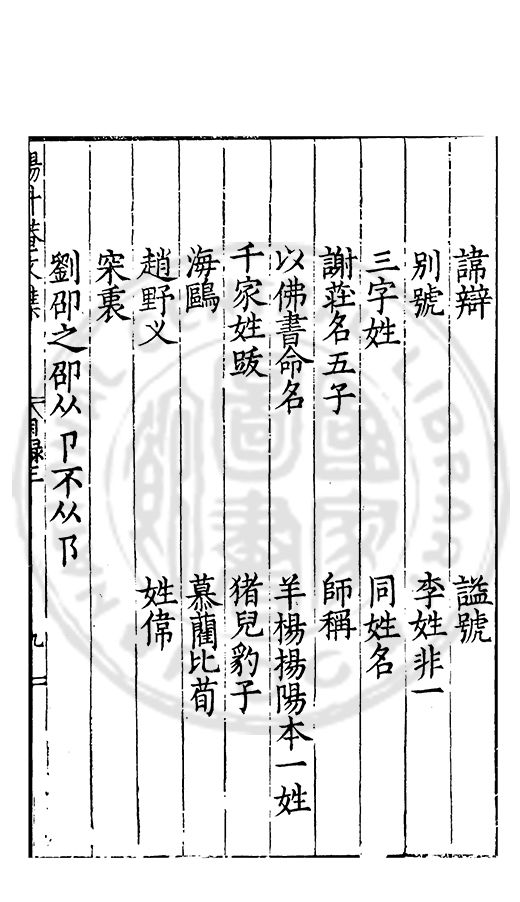 諱辯 謚號
别號 李姓非一
三字姓 同姓名
謝莊名五子 師稱
以佛書命名 羊楊揚陽本一姓
千家姓䟦 猪兒豹子
海鷗 慕藺比荀
趙野义 姓偉
寀褱
劉卲之卲从卩不从阝
目録三
九